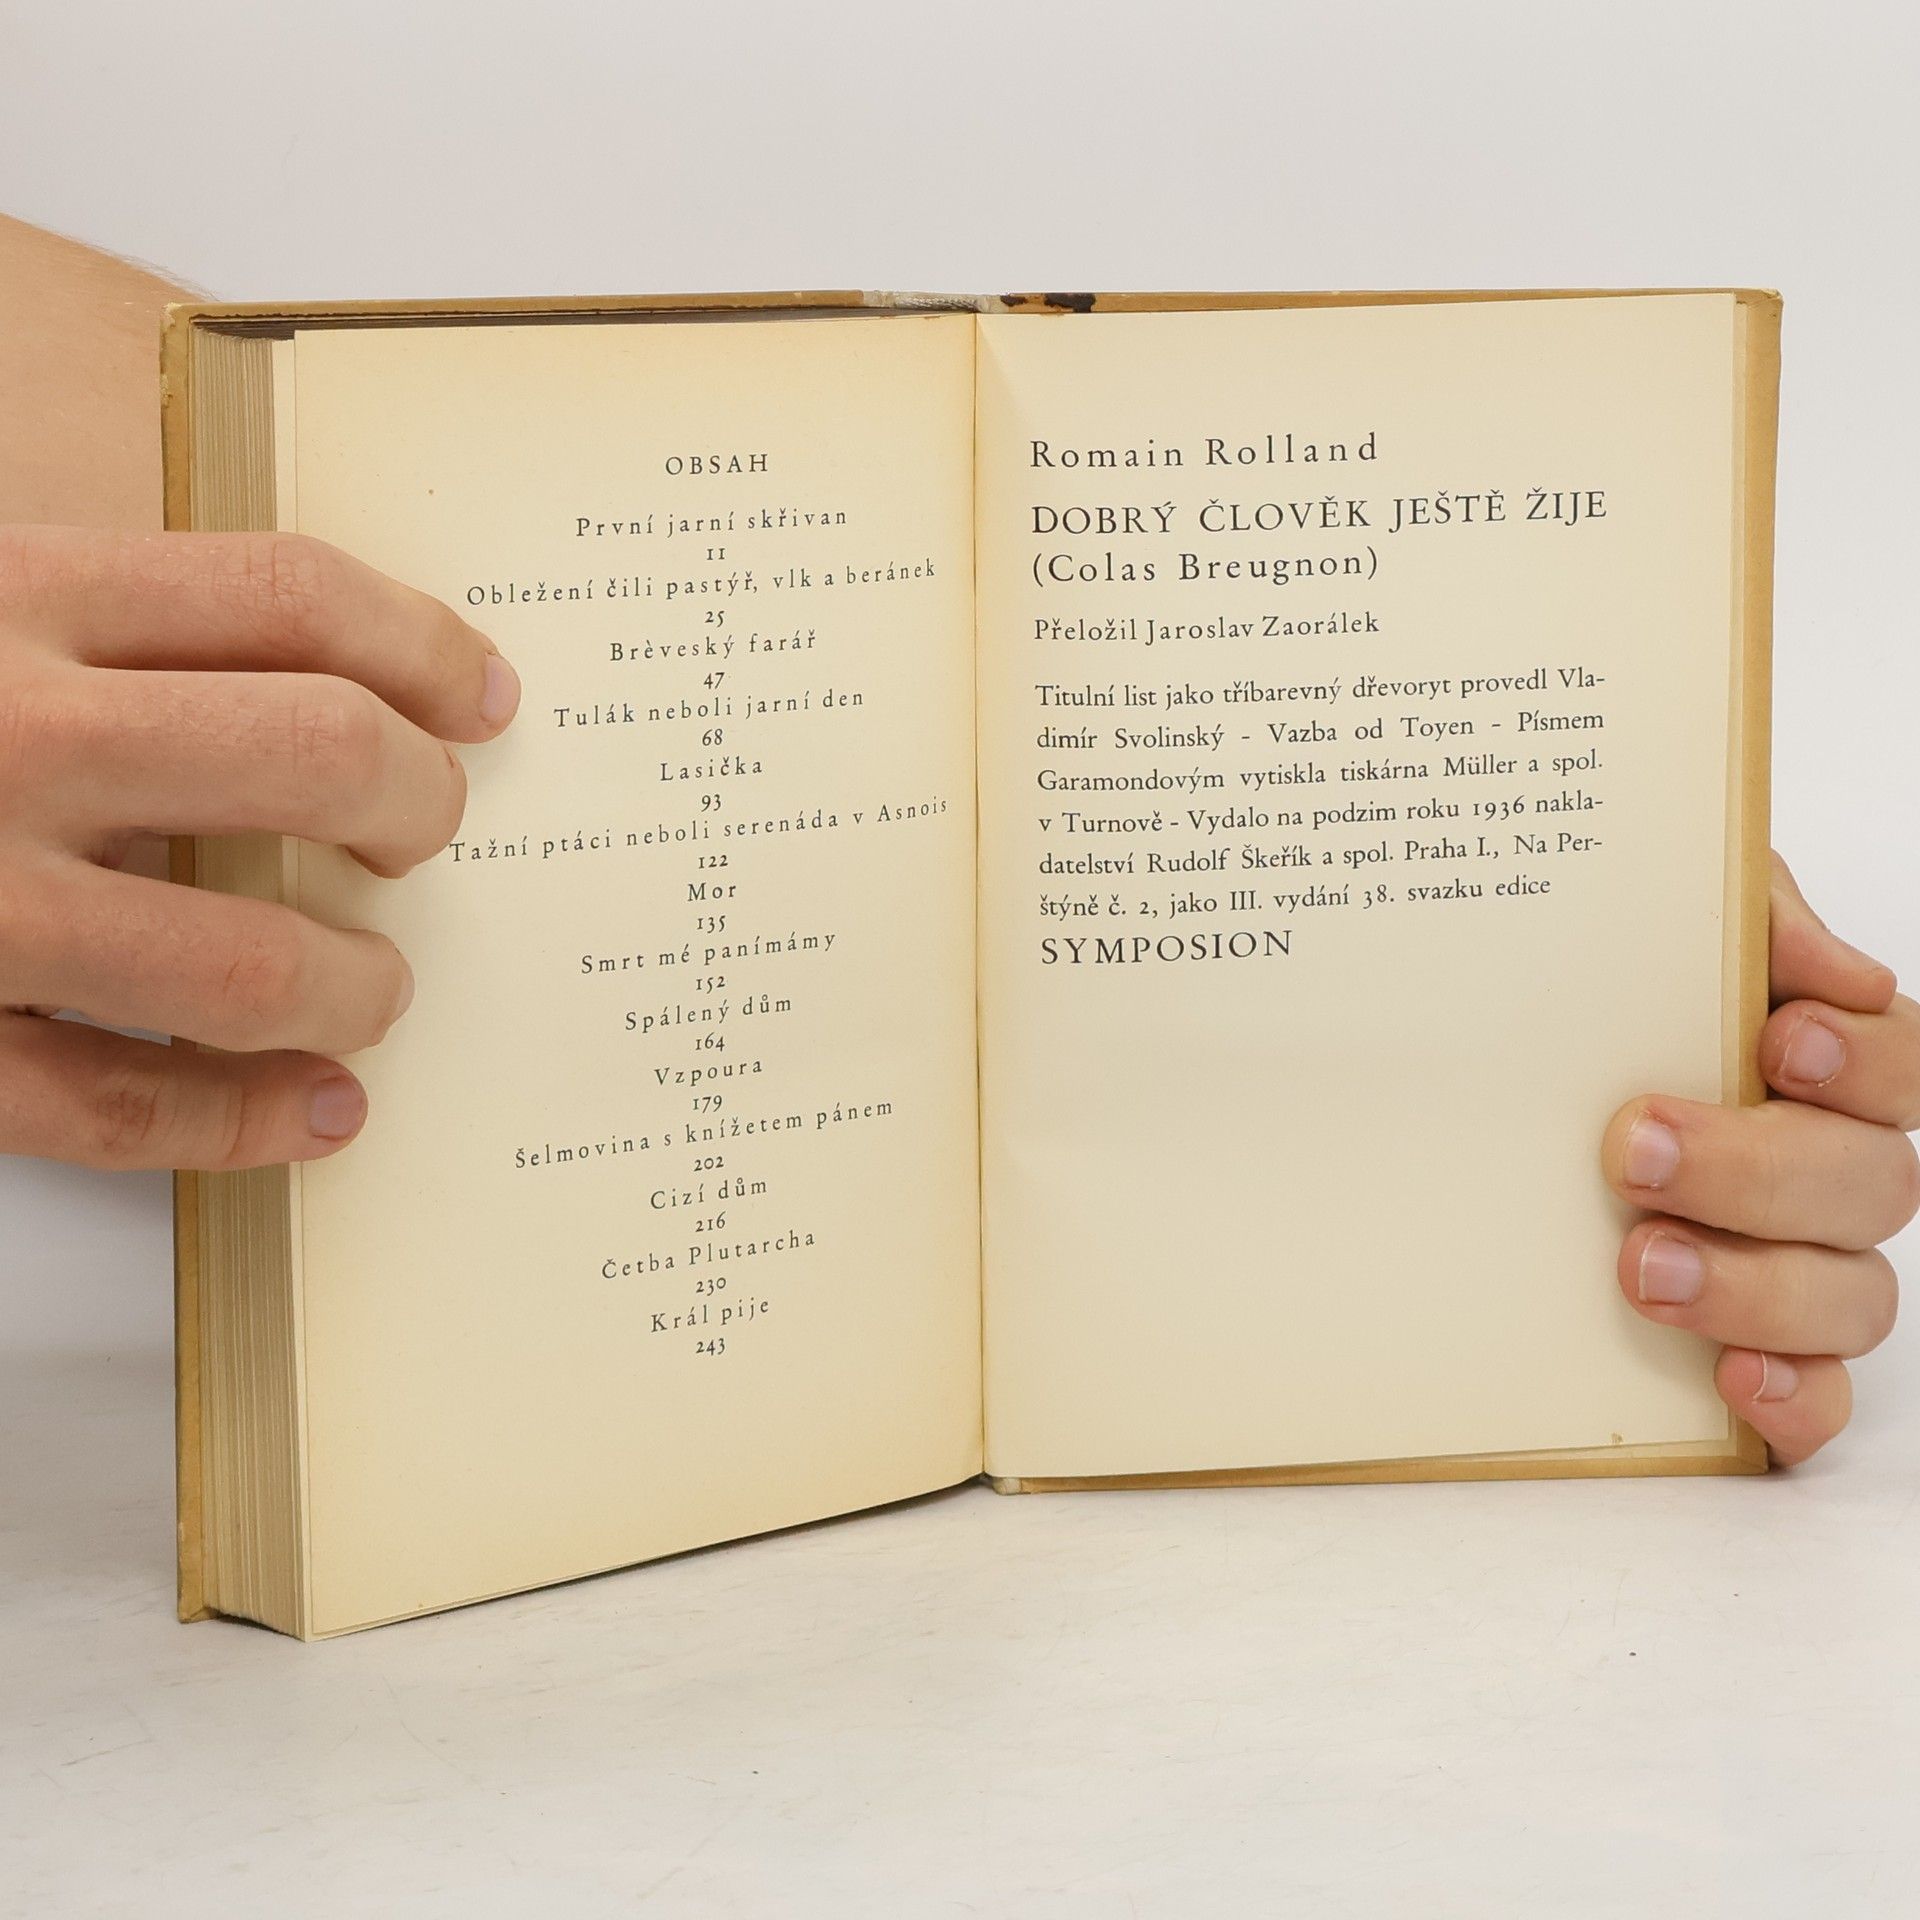 OBSAH
První jarní skřivan
11
Obležení čili pastýř, vlk a beránek
25
Brèveský farář
47
Tulák neboli jarní den
68
Lasička
93
Tažní ptáci neboli serenáda v Asnois
122
Mor
135
Smrt mé panímámy
152
Spálený dům
164
Vzpoura
179
Šelmovina s knížetem pánem
202
Cizí dům
216
Četba Plutarcha
230
Král pije
243
Romain Rolland
DOBRÝ ČLOVĚK JEŠTĚ ŽIJE
(Colas Breugnon)
Přeložil Jaroslav Zaorálek
Titulní list jako tříbarevný dřevoryt provedl Vla-
dimír Svolinský - Vazba od Toyen - Písmem
Garamondovým vytiskla tiskárna Müller a spol.
v Turnově - Vydalo na podzim roku 1936 nakla-
datelství Rudolf Škeřík a spol. Praha I., Na Per-
štýně č. 2, jako III. vydání 38. svazku edice
SYMPOSION